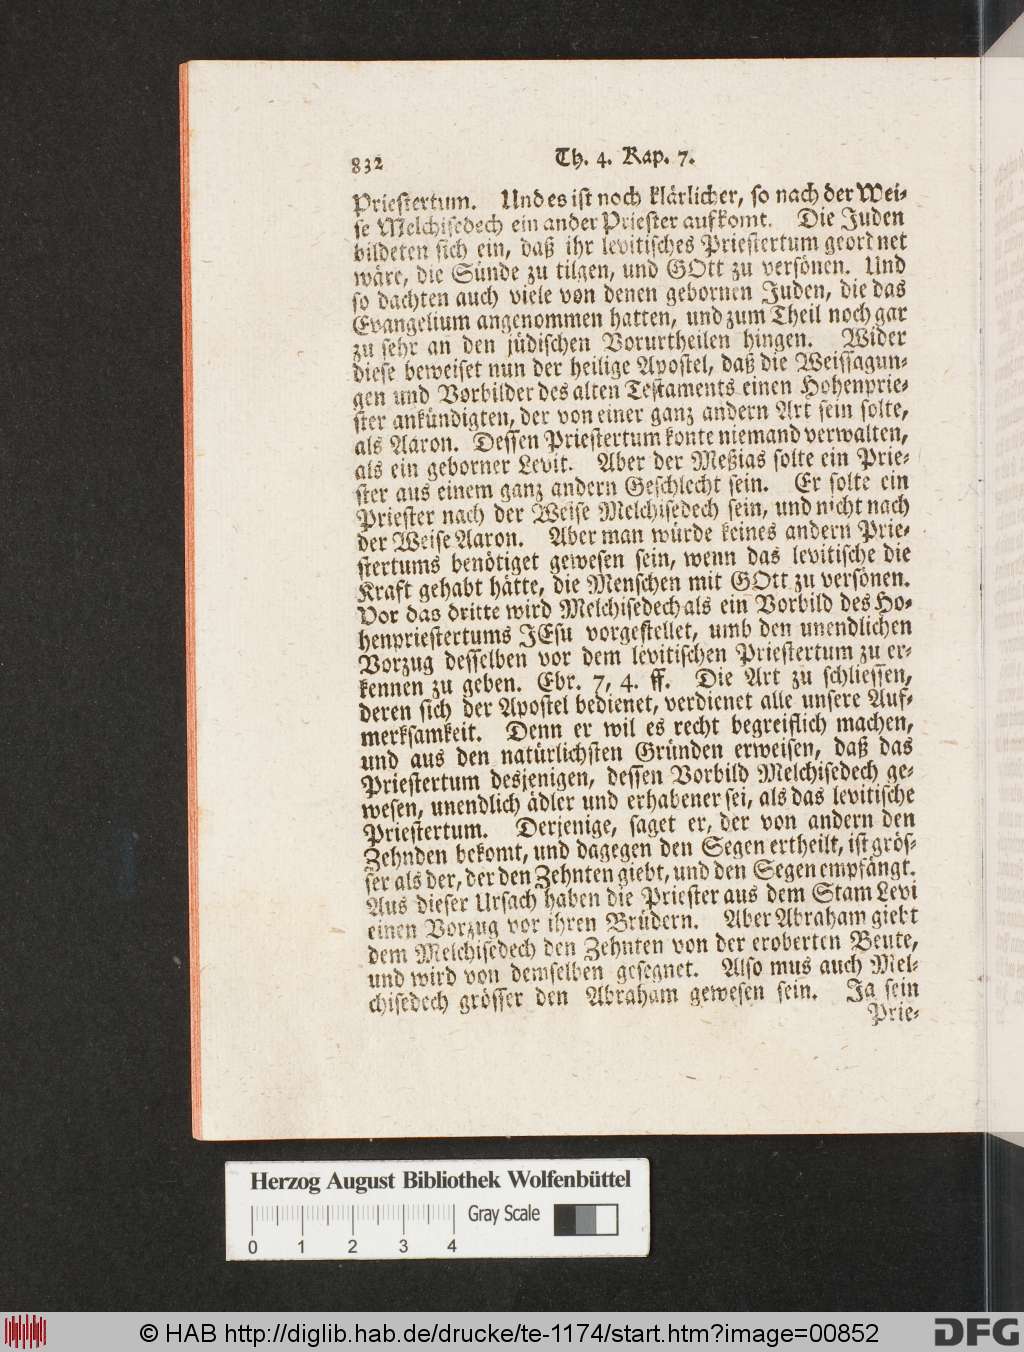 832 Th. 4. Kap. 7.
Priestertum. Und es ist noch klärlicher, so nach der Wei-
se Melchisedech ein ander Priester aufkomt. Die Juden
bildeten sich ein, daß ihr levitisches Priestertum geordnet
wäre, die Sünde zu tilgen, und GOtt zu versönen. Und
so dachten auch viele von denen gebornen Juden, die das
Evangelium angenommen hatten, und zum Theil noch gar
zu sehr an den jüdischen Vorurtheilen hingen. Wider
diese beweiset nun der heilige Apostel, daß die Weissagun-
gen und Vorbilder des alten Testaments einen Hohenprie-
ster ankündigten, der von einer ganz andern Art sein solte,
als Aaron. Dessen Priestertum konte niemand verwalten,
als ein geborner Levit. Aber der Meßias solte ein Prie-
ster aus einem ganz andern Geschlecht sein. Er solte ein
Priester nach der Weise Melchisedech sein, und nicht nach
der Weise Aaron. Aber man würde keines andern Prie-
stertums benötiget gewesen sein, wenn das levitische die
Kraft gehabt hätte, die Menschen mit GOtt zu versönen.
Vor das dritte wird Melchisedech als ein Vorbild des Ho-
henpriestertums JEsu vorgestellet, umb den unendlichen
Vorzug desselben vor dem levitischen Priestertum zu er-
kennen zu geben. Ebr. 7, 4. ff. Die Art zu schliessen,
deren sich der Apostel bedienet, verdienet alle unsere Auf-
merksamkeit. Denn er wil es recht begreiflich machen,
und aus den natürlichsten Gründen erweisen, daß das
Priestertum desjenigen, dessen Vorbild Melchisedech ge-
wesen, unendlich ädler und erhabener sei, als das levitische
Priestertum. Derjenige, saget er, der von andern den
Zehnden bekomt, und dagegen den Segen ertheilt, ist grös-
ser als der, der den Zehnten giebt, und den Segen empfängt.
Aus dieser Ursach haben die Priester aus dem Stam Levi
einen Vorzug vor ihren Brüdern. Aber Abraham giebt
dem Melchisedech den Zehnten von der eroberten Beute,
und wird von demselben gesegnet. Also mus auch Mel-
chisedech grösser den Abraham gewesen sein. Ja sein
Prie-
Herzog August Bibliothek Wolfenbüttel
Gray Scale
0 1 2 3 4
© HAB http://diglib.hab.de/drucke/te-1174/start.htm?image=00852
DFG